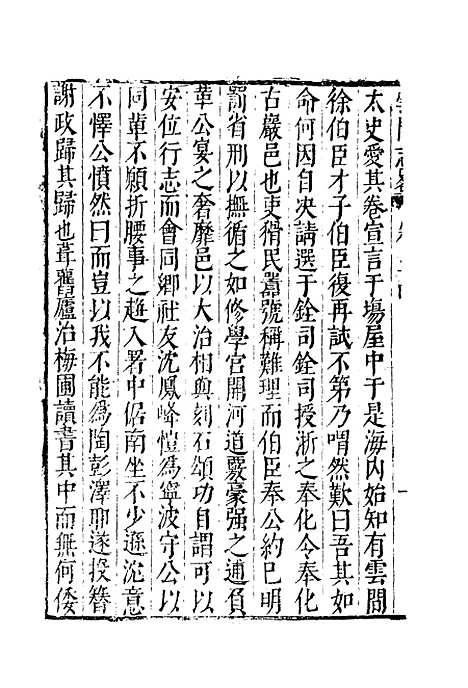 太史愛其卷宣言于場屋中于是海內始知有雲間
徐伯臣才子伯臣復再試不第乃喟然歎曰吾其如
命何因自決請選于銓司銓司授浙之奉化令奉化
古嚴邑也吏猾民嚚號稱難理而伯臣奉公約已明
罰省刑以撫循之如修學宮開河道覈豪强之逋負
革公宴之奢靡邑以大治相與刻石頌功自謂可以
安位行志而會同鄉社友沈鳳峰愷爲寧波守公以
同軰不願折腰事之趨入署中偘南坐不少遜沈意
不懌公憤然曰而豈以我不能爲陶彭澤聊遂投簪
謝政歸其歸也葺舊廬治梅圃讀書其中而無何倭